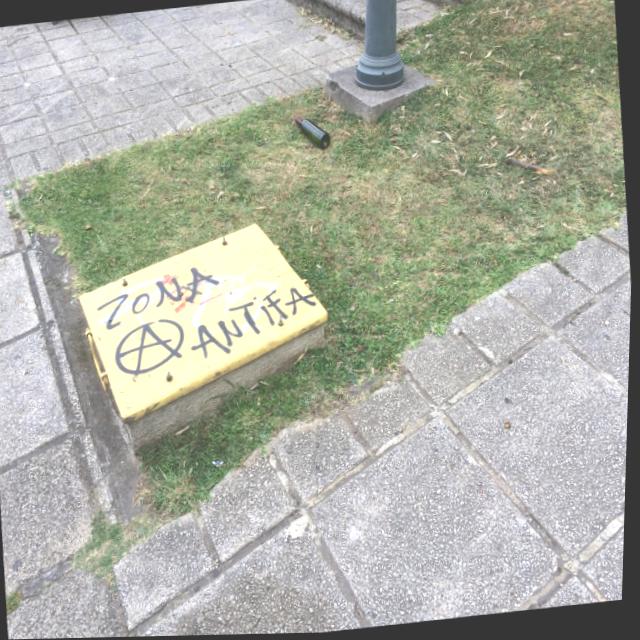 ZONA
ANTIFA